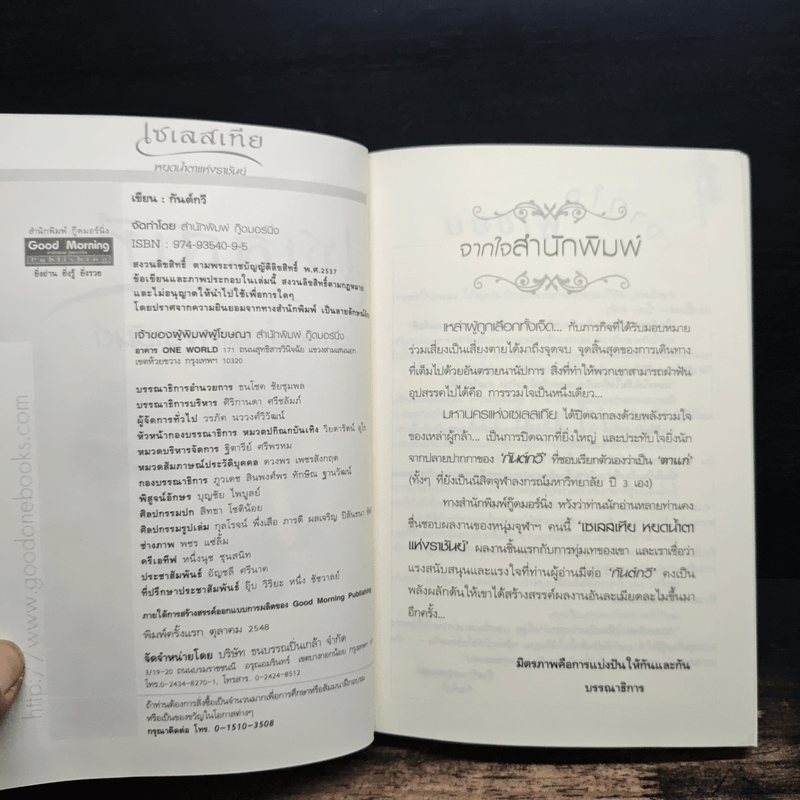 เซเลสเทีย
หยดน้ำตาแห่งราชันย์
เขียน : กันต์กวี
สำนักพิมพ์ กู๊ดมอร์นิ่ง
Good Morning
Publishing
ยิ่งอ่าน ยิ่งรู้ ยิ่งรวย
จัดทำโดย สำนักพิมพ์ กู๊ดมอร์นิ่ง
ISBN : 974-93540-9-5
สงวนลิขสิทธิ์ ตามพระราชบัญญัติลิขสิทธิ์ พ.ศ.2537
ข้อเขียนและภาพประกอบในเล่มนี้ สงวนลิขสิทธิ์ตามกฎหมาย
และไม่อนุญาตให้นำไปใช้เพื่อการใดๆ
โดยปราศจากความยินยอมจากทางสำนักพิมพ์ เป็นลายลักษณ์
เจ้าของผู้พิมพ์ผู้โฆษณา สำนักพิมพ์ กู๊ดมอร์นิ่ง
อาคาร ONE WORLD 171 ถนนสุทธิสารวินิจฉัย แขวงสามเสนนอก
เขตห้วยขวาง กรุงเทพฯ 10320
บรรณาธิการอำนวยการ ธนโชค ชัยชุมพล
บรรณาธิการบริหาร ศิริกานดา ศรีชลัมภ์
ผู้จัดการทั่วไป วรภัค นววงศ์วิวัฒน์
หัวหน้ากองบรรณาธิการ หมวดปกิณกบันเทิง วิยดารัตน์
หมวดบริหารจัดการ ฐิตารีย์ ศรีพรหม
หมวดสัมภาษณ์ประวัติบุคคล ดวงพร เพชรสังกฤต
กองบรรณาธิการ ภูวเดช สินพงศ์พร ทักษิณ ฐานวัฒน์
พิสูจน์อักษร บุญชัย ไพบูลย์
ศิลปกรรมปก สิทธา โชติน้อย
ศิลปกรรมรูปเล่ม กุลโรจน์ พึ่งเสือ ภารดี ผลเจริญ ปิลันธนา
ช่างภาพ พชร แซ่ลิ้ม
ครีเอทีฟ หนึ่งนุช ชุนสนิท
ประชาสัมพันธ์ อัญชลี ศรีนาค
ที่ปรึกษาประชาสัมพันธ์ อุ๊บ วิริยะ หนึ่ง ชัชวาลย์
ภายใต้การสร้างสรรค์ออกแบบการผลิตของ Good Morning Publishing
พิมพ์ครั้งแรก ตุลาคม 2548
จัดจำหน่ายโดย บริษัท ธนบรรณปิ่นเกล้า จำกัด
3/19-20 ถนนบรมราชชนนี อรุณอมรินทร์ เขตบางกอกน้อย
โทร.0-2434-8270-1, โทรสาร. 0-2424-8512
ถ้าท่านต้องการสั่งซื้อเป็นจำนวนมากเพื่อการศึกษาหรือสัมมนาฝึกอบรม
หรือเป็นของขวัญในโอกาสต่างๆ
กรุณาติดต่อ โทร. 0-1510-3508
http://www.goodonebooks.com
จากใจสำนักพิมพ์
เหล่าผู้ถูกเลือกทั้งเจ็ด... กับภารกิจที่ได้รับมอบหมาย
ร่วมเสี่ยงเป็นเสี่ยงตายได้มาถึงจุดจบ จุดสิ้นสุดของการเดินทาง
ที่เต็มไปด้วยอันตรายนานัปการ สิ่งที่ทำให้พวกเขาสามารถฝ่าฟัน
อุปสรรคไปได้คือ การรวมใจเป็นหนึ่งเดียว...
มหานครแห่งเซเลสเทีย ได้ปิดฉากลงด้วยพลังรวมใจ
ของเหล่าผู้กล้า... เป็นการปิดฉากที่ยิ่งใหญ่ และประทับใจยิ่งนัก
จากปลายปากกาของ 'กันต์กวี' ที่ชอบเรียกตัวเองว่าเป็น 'ตาแก่'
(ทั้งๆ ที่ยังเป็นนิสิตจุฬาลงกรณ์มหาวิทยาลัย ปี 3 เอง)
ทางสำนักพิมพ์กู๊ดมอร์นิ่ง หวังว่าท่านนักอ่านหลายท่านคง
ชื่นชอบผลงานของหนุ่มจุฬาฯ คนนี้ 'เซเลสเทีย หยดน้ำตา
แห่งราชันย์' ผลงานชิ้นแรกกับการทุ่มเทของเขา และเราเชื่อว่า
แรงสนับสนุนและแรงใจที่ท่านผู้อ่านมีต่อ 'กันต์กวี' คงเป็น
พลังผลักดันให้เขาได้สร้างสรรค์ผลงานอันละเมียดละไมขึ้นมา
อีกครั้ง...
มิตรภาพคือการแบ่งปันให้กันและกัน
บรรณาธิการ